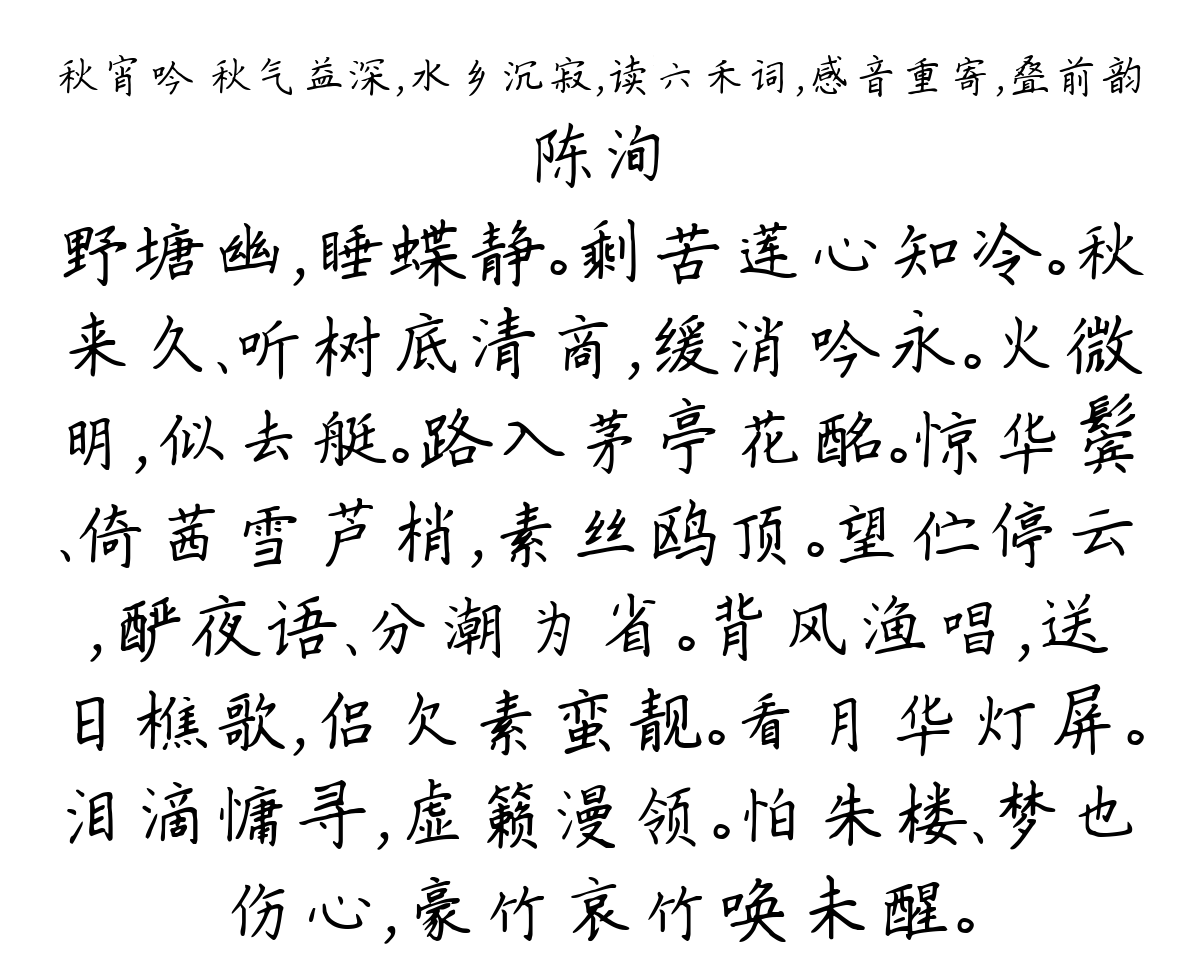 秋宵吟 秋气益深,水乡沉寂,读六禾词,感音重寄,叠前韵
陈洵
野塘幽,睡蝶静。剩苦莲心知冷。秋
来久、听树底清商,缓消吟永。火微
明,似去艇。路入茅亭花酩。惊华鬓
、倚茜雪芦梢,素丝鸥顶。望伫停云
,酽夜语、分潮为省。背风渔唱,送
日樵歌,侣欠素蛮靓。看月华灯屏。
泪滴慵寻,虚籁漫领。怕朱楼、梦也
伤心,豪竹哀竹唤未醒。